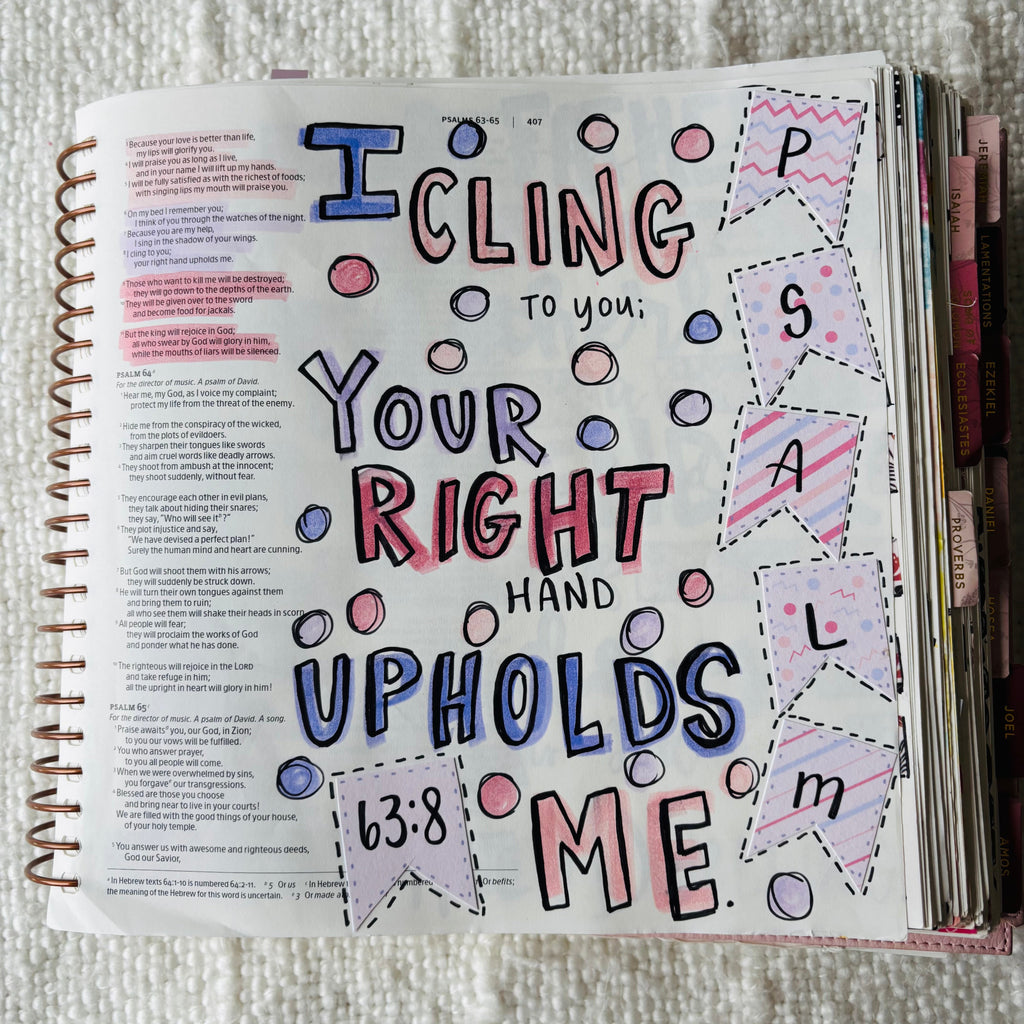 PSALMS 63-65 | 407
³ Because your love is better than life,
my lips will glorify you.
⁴ I will praise you as long as I live,
and in your name I will lift up my hands.
⁵ I will be fully satisfied as with the richest of foods;
with singing lips my mouth will praise you.
⁶ On my bed I remember you;
I think of you through the watches of the night.
⁷ Because you are my help,
I sing in the shadow of your wings.
⁸ I cling to you;
your right hand upholds me.
⁹ Those who want to kill me will be destroyed;
they will go down to the depths of the earth.
¹⁰ They will be given over to the sword
and become food for jackals.
¹¹ But the king will rejoice in God;
all who swear by God will glory in him,
while the mouths of liars will be silenced.
PSALM 64
For the director of music. A psalm of David.
¹ Hear me, my God, as I voice my complaint;
protect my life from the threat of the enemy.
² Hide me from the conspiracy of the wicked,
from the plots of evildoers.
³ They sharpen their tongues like swords
and aim cruel words like deadly arrows.
⁴ They shoot from ambush at the innocent;
they shoot suddenly, without fear.
⁵ They encourage each other in evil plans,
they talk about hiding their snares;
they say, "Who will see it?"
⁶ They plot injustice and say,
"We have devised a perfect plan!"
Surely the human mind and heart are cunning.
⁷ But God will shoot them with his arrows;
they will suddenly be struck down.
⁸ He will turn their own tongues against them
and bring them to ruin;
all who see them will shake their heads in scorn.
⁹ All people will fear;
they will proclaim the works of God
and ponder what he has done.
¹⁰ The righteous will rejoice in the LORD
and take refuge in him;
all the upright in heart will glory in him!
PSALM 65
For the director of music. A psalm of David. A song.
¹ Praise awaits you, our God, in Zion;
to you our vows will be fulfilled.
² You who answer prayer,
to you all people will come.
³ When we were overwhelmed by sins,
you forgave our transgressions.
⁴ Blessed are those you choose
and bring near to live in your courts!
We are filled with the good things of your house,
of your holy temple.
⁵ You answer us with awesome and righteous deeds,
God our Savior,
In Hebrew texts 64:1-10 is numbered 64:2-11. ᵇ 5 Or us ᶜ In Hebrew numbered Or befits;
the meaning of the Hebrew for this word is uncertain. 3 Or made
I
CLING
TO YOU;
YOUR
RIGHT
HAND
UPHOLDS
ME.
63:8
P
S
A
L
m
JEREMIAH
ISAIAH
LAMENTATIONS
SONG OF SOLOMON
EZEKIEL
ECCLESIASTES
DANIEL
PROVERBS
HOSEA
JOEL
AMOS